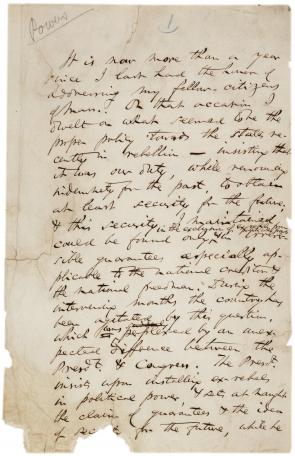 Powers
1
It is now more than a year
since I last had the honor of
addressing my fellow-citizens
of Mass. On that occasion I
dwelt on what seemed to be the
proper policy towards the States re-
cently in rebellion — insisting that
it was our duty, while renouncing
indemnity for the past, to obtain
at least security for the future,
& this security, I maintained,
could be found only in irrever-
sible guarantees especially ap-
plicable to the national creditor &
the national freedman. During the
intervening months the country has
been agitated by this question,
which was perplexed by an unex-
pected difference between the
Presdt. & Congress. The Presdt.
insists upon installing ex-rebels
in political power, & sets at naught
the claim of guarantees & the idea
of security for the future, while he